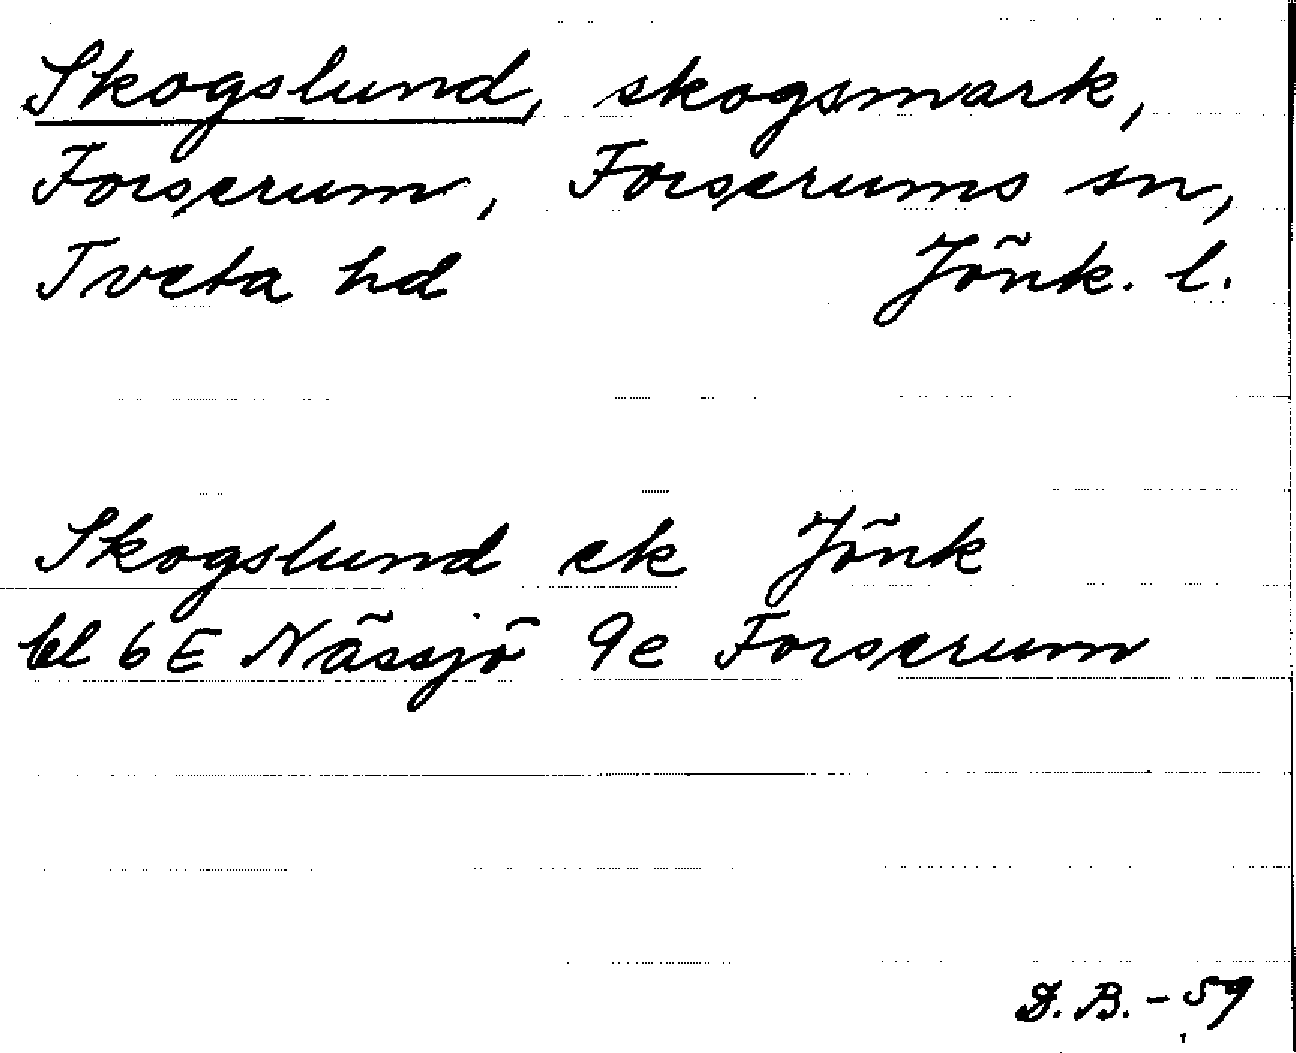 Skogslund, skogsmark,
Forserum, Forserums sn,
Tveta hd Jönk. l.
Skogslund ek Jönk
bl 6E Nässjö 9e Forserum
D.B. - 59